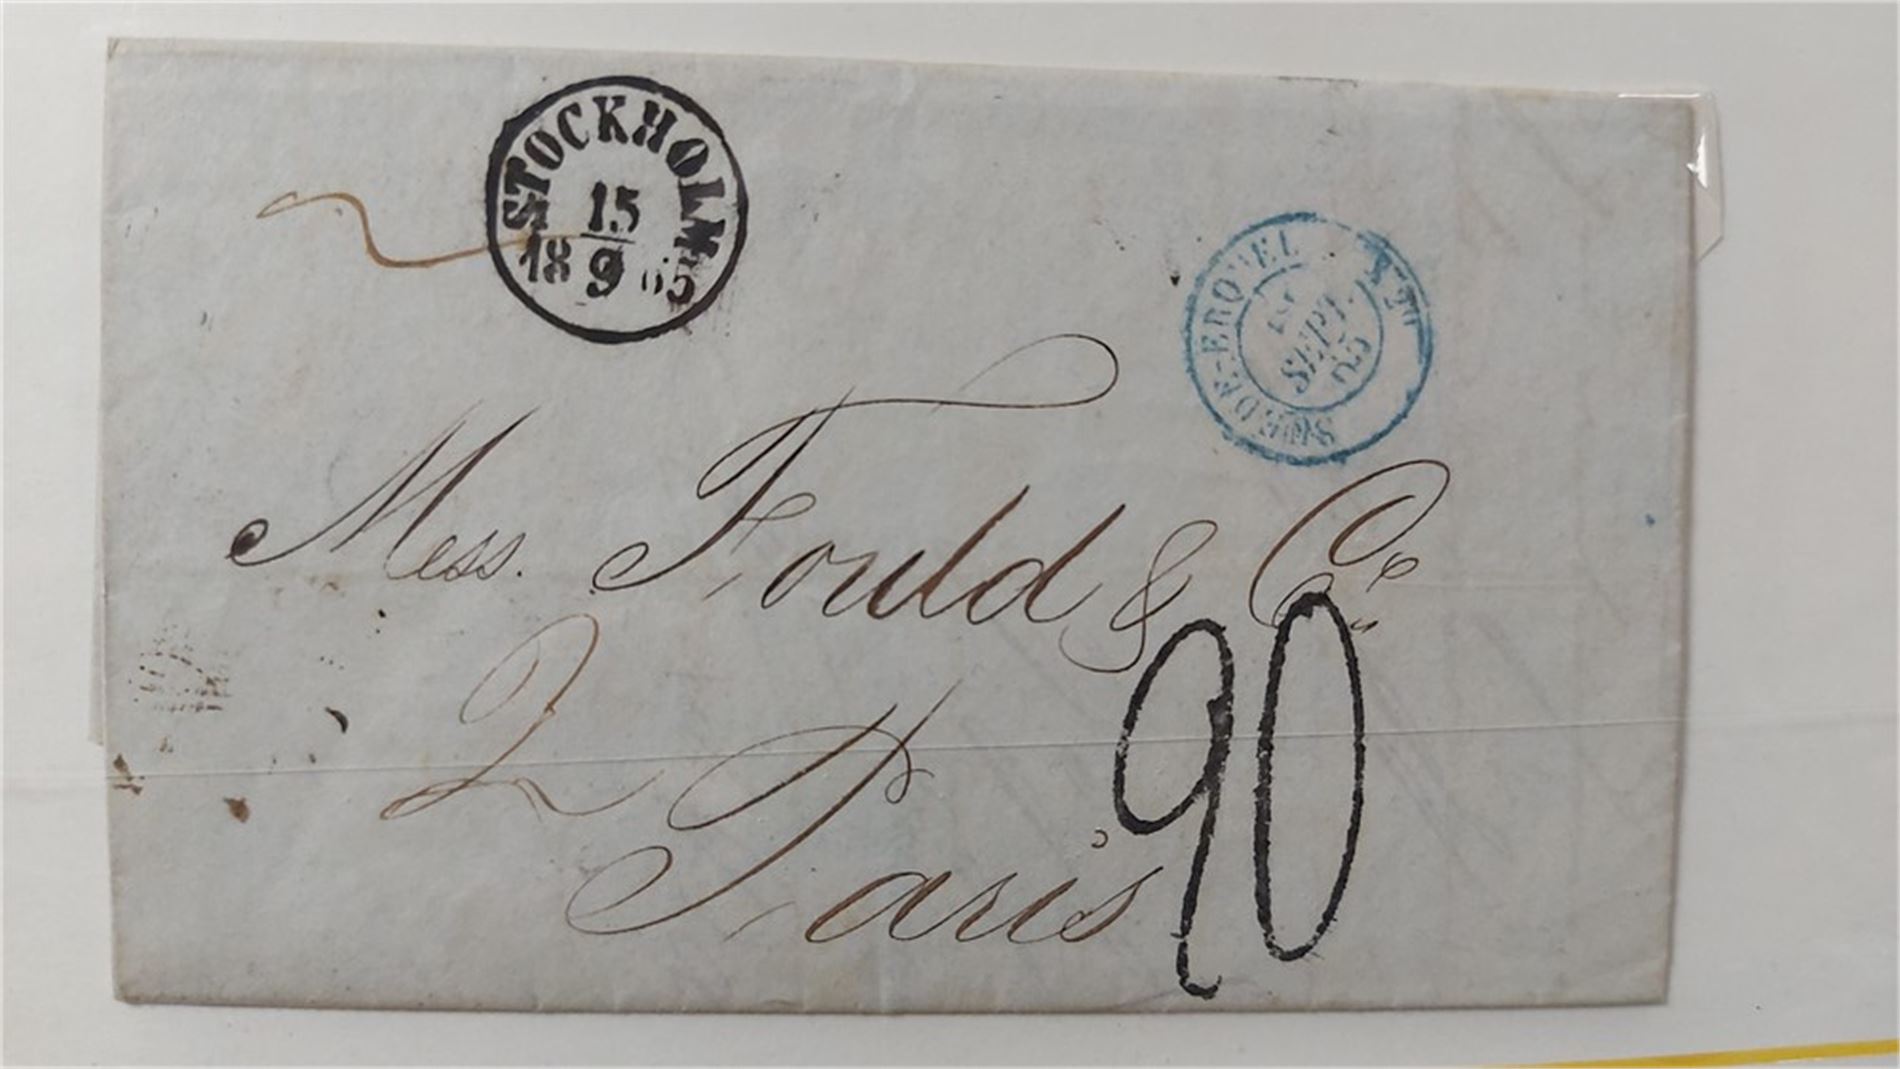 STOCKHOLM
15
18 9 65
SUEDE-ERQUEL
SEPT.
65
Mess. Fould & Cie
90
2
Paris